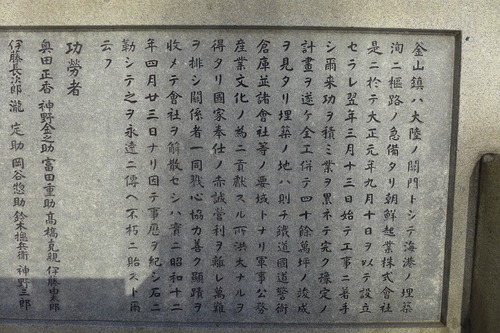 釜山鎮ハ大陸ノ關門トシテ海港ノ埋築
洵ニ樞路ノ急備タリ朝鮮起業株式会社
是ニ於テ大正元年九月十日ヲ以テ設立
セラレ翌年三月十三日始テ工事ニ著手
シ爾来功ヲ積ミ業ヲ累ネテ完ク豫定ノ
計畫ヲ遂ケ全工併テ四十餘萬坪ノ竣成
ヲ見タリ埋築ノ地ハ則チ鐵道國道警衛
倉庫並諸會社等ノ要域トナリ軍事公務
産業文化ノ為ニ貢献スル所洪大ナルヲ
得タリ國家奉仕ノ赤誠營利ヲ離レ萬難
ヲ排シ關係者一同戮心協力善ク顯蹟ヲ
收メテ會社ヲ解散セシハ實ニ昭和十二
年四月廿三日ナリ因テ事歴ヲ紀シ石ニ
勒シテ之ヲ永遠ニ傳ヘ不朽ニ貽スト爾
云フ
功勞者
奥田正香 神野金之助 富田重助 高橋克親 伊藤由太郎
伊藤長次郎 瀧定助 岡谷惣助 鈴木摠兵衛 神野三郎